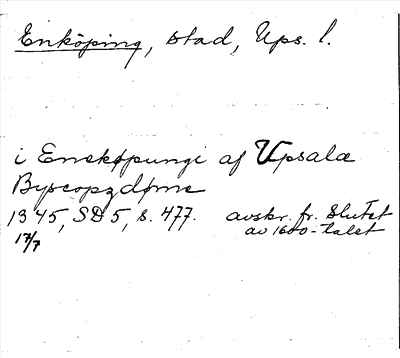 Enköping, stad, Ups. l.
i Eneköpungi af Upsala
Byscopzdøme
1345, SD 5, s. 477. avskr. fr. slutet
17/7 av 1600-talet